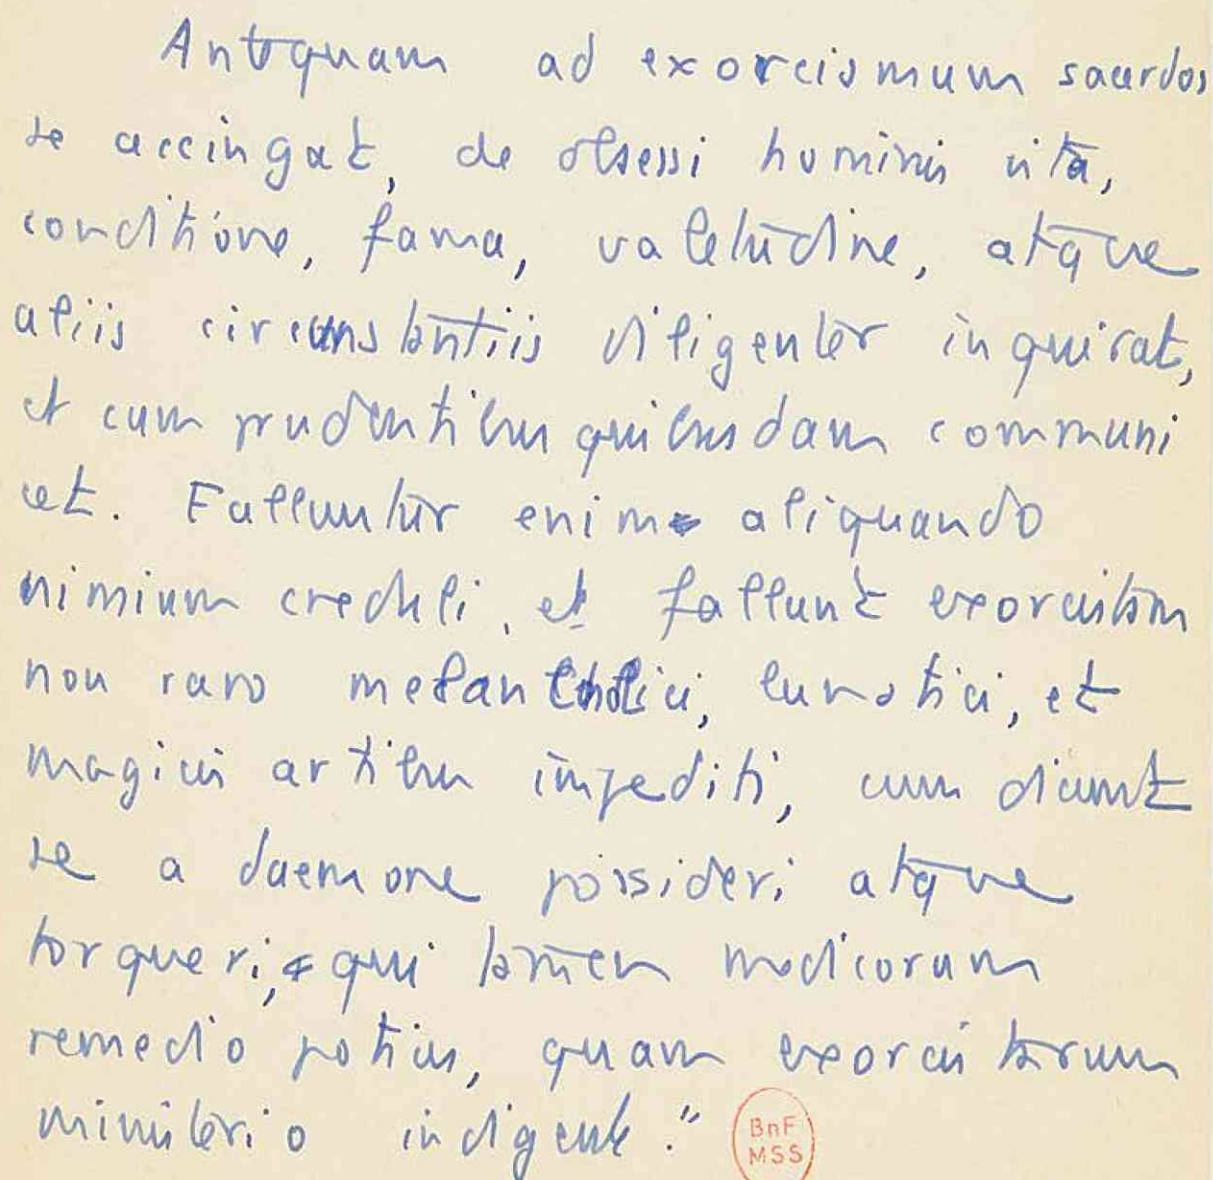 Antequam ad exorcismum sacerdos
se accingat, de obsessi hominis vita,
conditione, fama, valetudine, atque
aliis circumstantiis diligenter inquirat,
et cum prudentibus quibusdam communi
cet. Falluntur enim aliquando
nimium creduli, et fallunt exorcistam
non raro melancholici, lunatici, et
magicis artibus impediti, cum dicunt
se a daemone possideri atque
torqueri, qui tamen medicorum
remedio potius, quam exorcistarum
ministerio indigent."
BnF
MSS